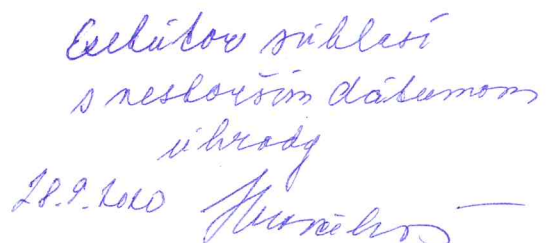 Exekútor súhlasí
s neskorším dátumom
úhrady
28.9.2020